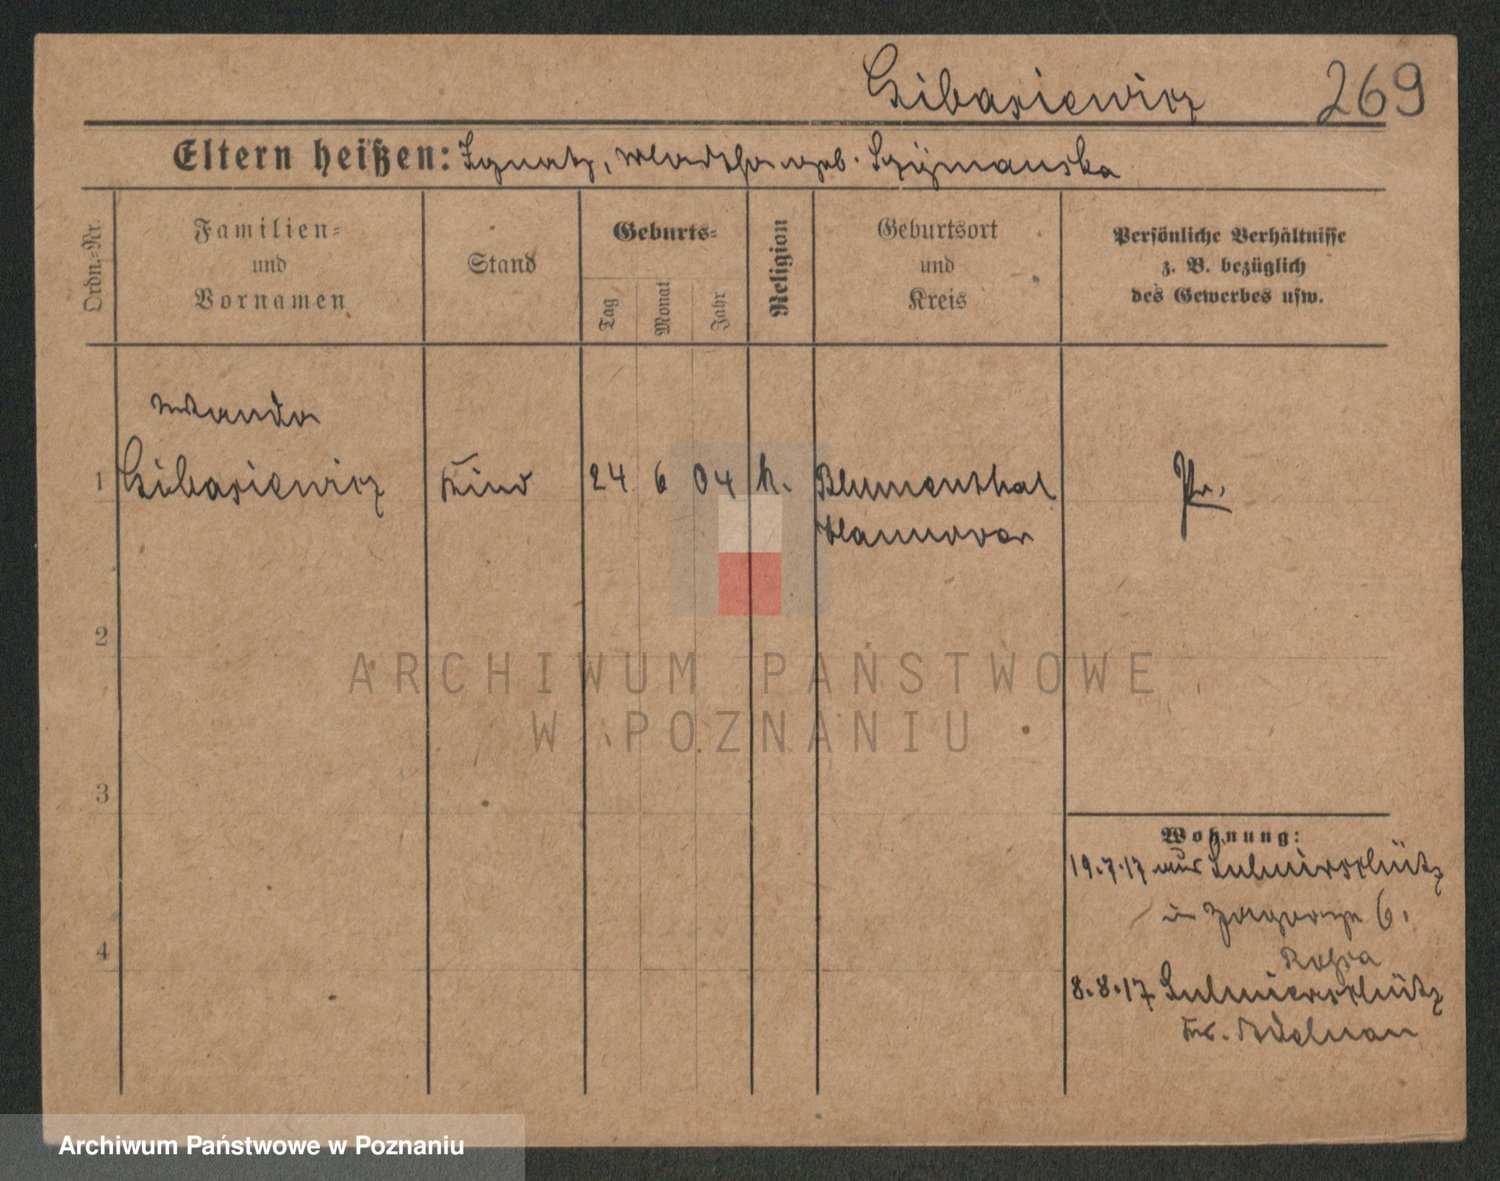 Cibasiewicz 269
Eltern heißen: Ignatz, geb. Szymanska
Ordn.-Nr.
Familien-
und
Vornamen
Stand
Geburts-
Tag
Monat
Jahr
Religion
Geburtsort
und
Kreis
Persönliche Verhältnisse
z. B. bezüglich
des Gewerbes usw.
Wanda
1 Cibasiewicz Kind 24 6 04 k. Blumenthal Pr.
Hannover
2
ARCHIWUM PAŃSTWOWE
W POZNANIU
3
Wohnung:
19.7.17 aus Sulmierschütz
in 6.
8.8.17 Sulmierschütz
Kr. Adelnau
4
Archiwum Państwowe w Poznaniu